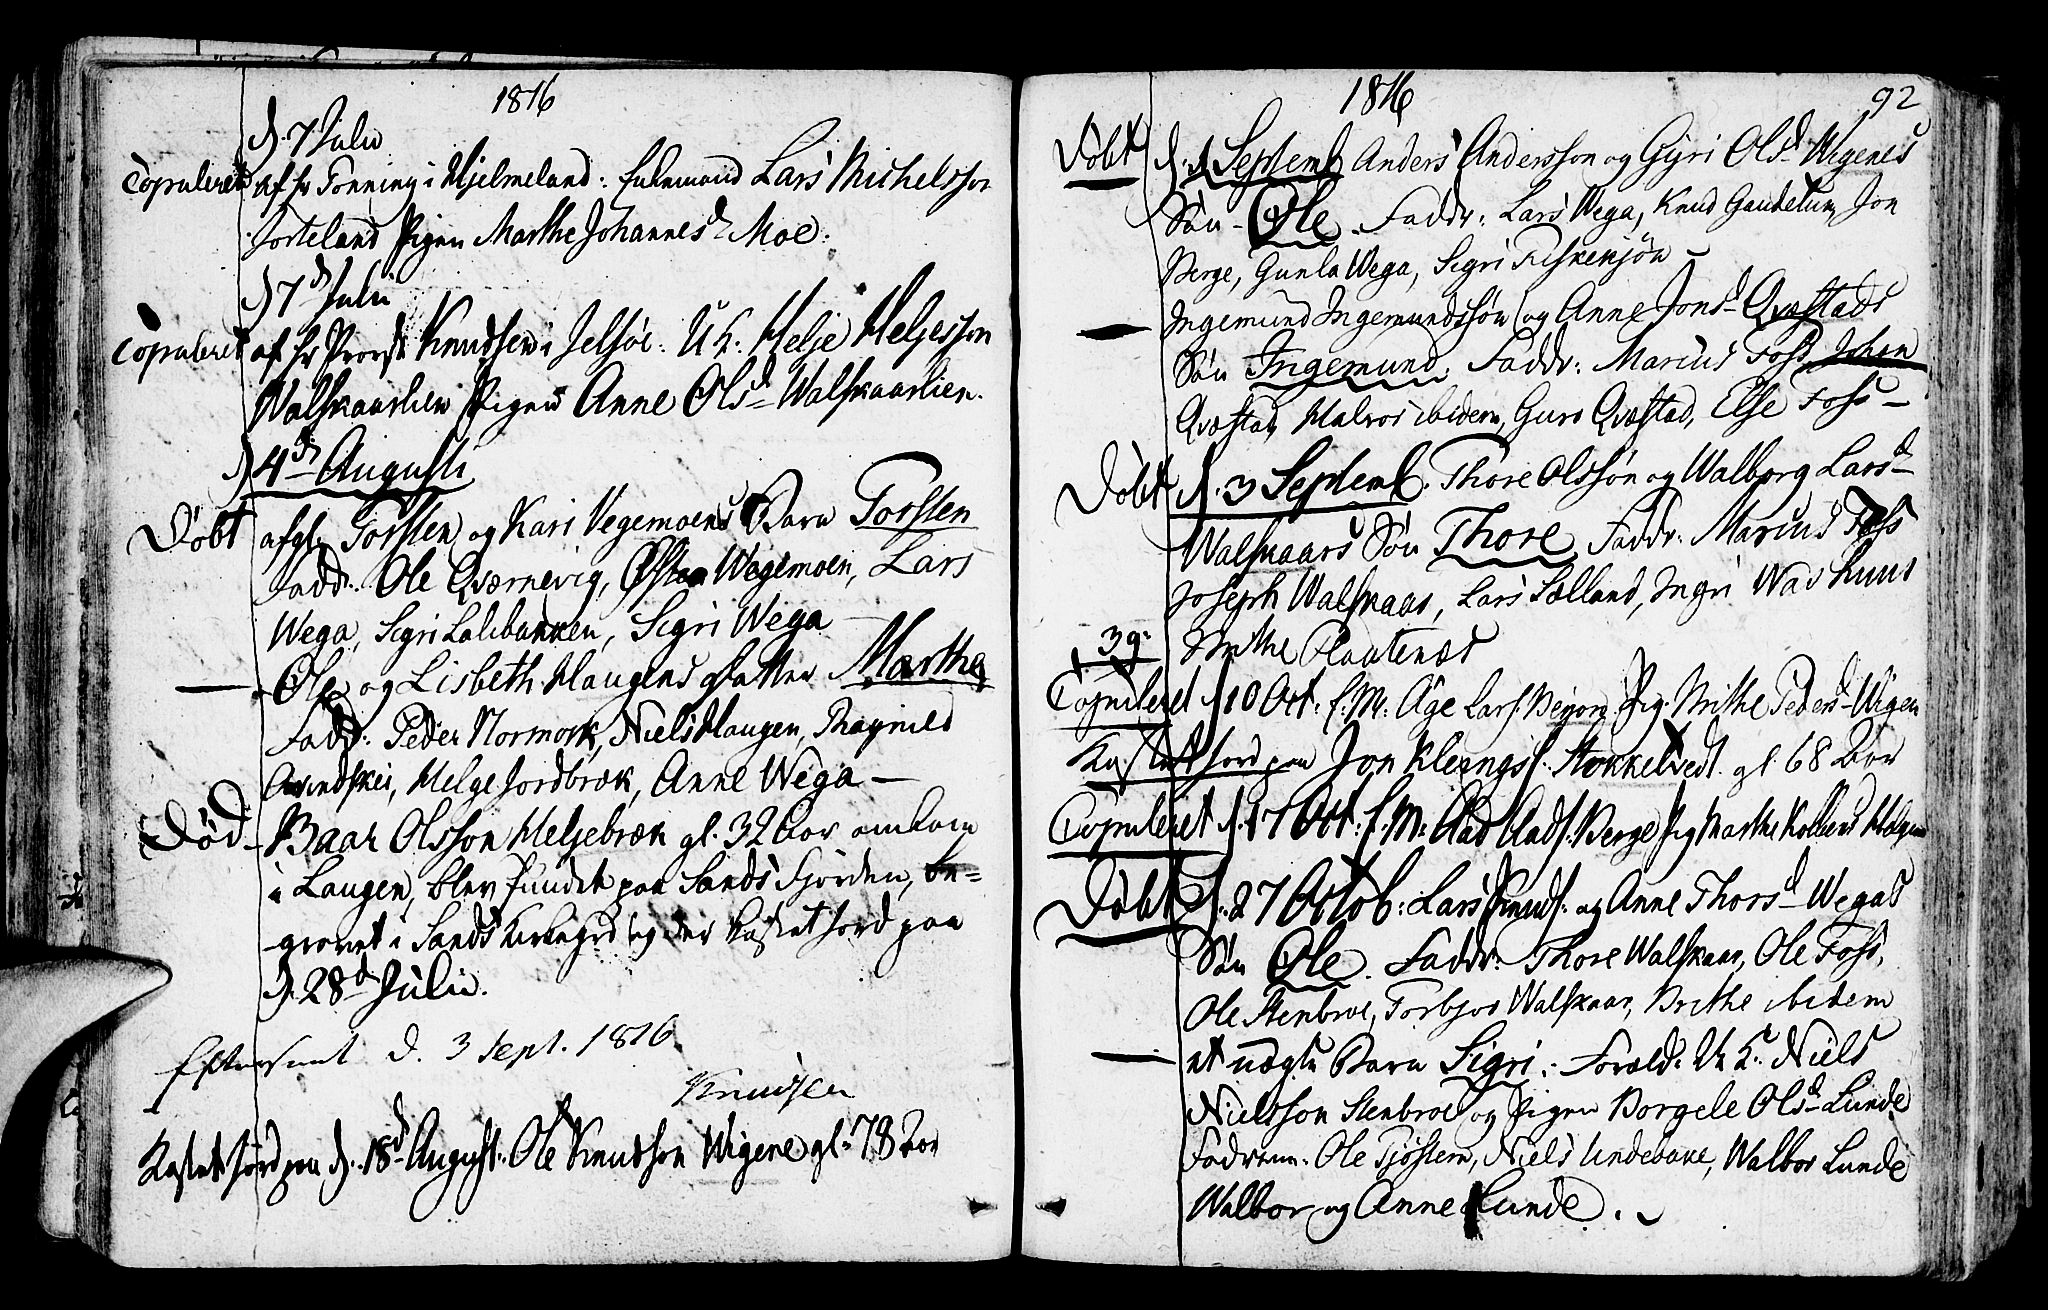 1816
d. 7 Julii
Copuleret af hr Tonning i Hjelmeland: Enkemand Lars Michelsson
Jorteland Pigen Marthe Johannesd Moe.
d 7d Julii
Copuleret af hr Provst Knudsen i Jelsöe: U. K: Helje Heljesson
Walskaarlien Pigen Anne Olsd Walskaarlien.
d 4d Augusti
Döbt afgl. Torsten og Kari Vegemoens Barn Torsten
Faddr. Ole Qværnevig, Östen Wegemoen, Lars
Wega, Sigri Lalibakken, Sigri Wega
— Ole og Lisbeth Haugens Datter Marthe
Faddr: Peder Normork, Niels Haugen, Ragnild
Helge Jordbræk, Anne Wega —
Död. Baar Olsson Heljebræk gl. 32 Aar omkom
i Laugen, blev fundet paa Sands Fjorden, be=
gravet i Sands Kirkegrd og der kastet Jord paa
d. 28d Julii.
d. 3 Sept. 1816
Knudsen
Kastet Jord paa d. 18d August. Ole Knudson Wigene gl. 78 Aar
1816
92
Döbt d. 1 Septemb Anders Andersson og Gyri Olsd Wegenes
Sön - Ole. Faddr: Lars Wega, Knud Gaudetun, Jon
Berge, Gunla Wega, Sigri Fiskekjön
— Ingemund Ingemundssön og Anne Jonsd Qvæstads
Sön Ingemund. Faddr: Marius Foss, Johan
Qvæstad, Halvor ibidem, Guro Qvæstad, Else Foss —
Döbt d. 3 Septemb. Thore Olssön og Walborg Larsd
Walskaars Sön Thore Faddr: Marius Foss
Joseph Walskaar, Lars Sælland, Ingri Washuus
39. Brithe Plaatenæs
Copuleret d 10 Oct. E. M. Age Lars. Pig. Brithe Pedersd Wigen
Kastet Jord paa Jon Klerngs. Stokkelvedt gl. 68 Aar
Copuleret d. 17 Oct. E. M: Aad Aads. Berge Pig Marthe
Döbt d. 27 Octob: Lars Knuds. og Anne Thorsd Wegas
Sön Ole. Faddr: Thore Walskaar, Ole Foss,
Ole Stenbroe, Torbjor Walskaar, Brithe ibidem
— et uægte Barn Sigri. Foræld: U K. Niels
Nielsson Stenbroe og Pigen Borgele Olsd Lunde
Faddrene: Ole Tjöstem, Niels Lindebake, Walbor Lunde
Walbor og Anne Lunde.